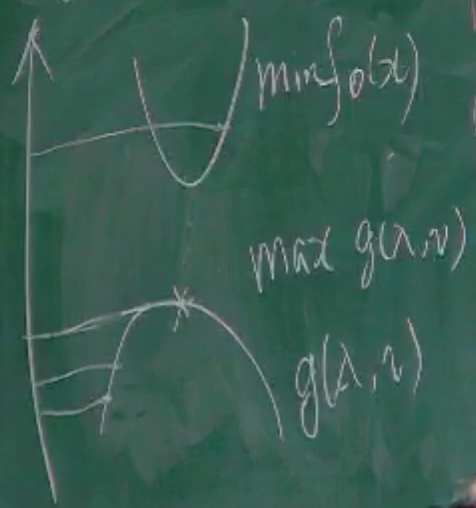 min f₀(x)
max g(λ,ν)
g(λ,ν)